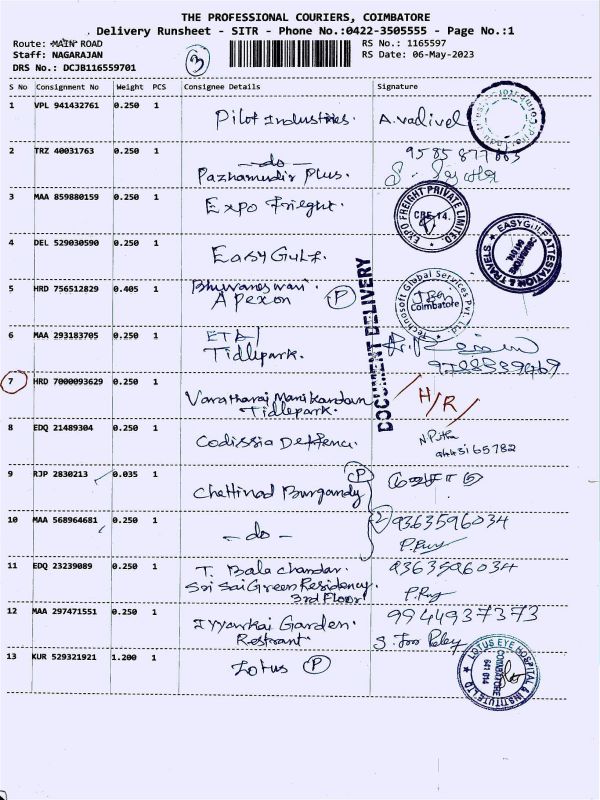 THE PROFESSIONAL COURIERS, COIMBATORE
Delivery Runsheet - SITR - Phone No.:0422-3505555 - Page No.:1
Route: MAIN ROAD
RS No.: 1165597
Staff: NAGARAJAN
RS Date: 06-May-2023
DRS No.: DCJB116559701
3
S No Consignment No Weight PCS Consignee Details Signature
1 VPL 941432761 0.250 1 Pilot Industries. A. Vadivel
2 TRZ 40031763 0.250 1 -do-
Pazhamudir Plus.
3 MAA 859880159 0.250 1 Expo Frieght.
EXPO FREIGHT PRIVATE LIMITED
CBE-14.
4 DEL 529030590 0.250 1 Easy Gulf.
EASYGULF ATTESTATION & TRAVELS
COIMBATORE
641 014
5 HRD 756512829 0.405 1 Bhuvaneswari
Apexon P
Technosoft Global Services Pvt. Ltd.
Coimbatore
DOCUMENT DELIVERY
6 MAA 293183705 0.250 1 ETA/
Tidlepark.
7 HRD 7000093629 0.250 1 Varatharaj Manikandan H/R/
Tidlepark.
8 EDQ 21489304 0.250 1 Codissia Deffenci.
9443165782
9 RJP 2830213 0.035 1 Chettinad Burgandy P
10 MAA 568964681 0.250 1 -do- 2 9363596034
11 EDQ 23239089 0.250 1 T. Bala chandar. 9363596034
Sri Sai Green Residency.
3rd Floor
12 MAA 297471551 0.250 1 Iyyarkai Garden. 9944937373
Restrant.
13 KUR 529321921 1.200 1 Lotus P
LOTUS EYE HOSPITAL & INSTITUTE LTD
COIMBATORE
641 014